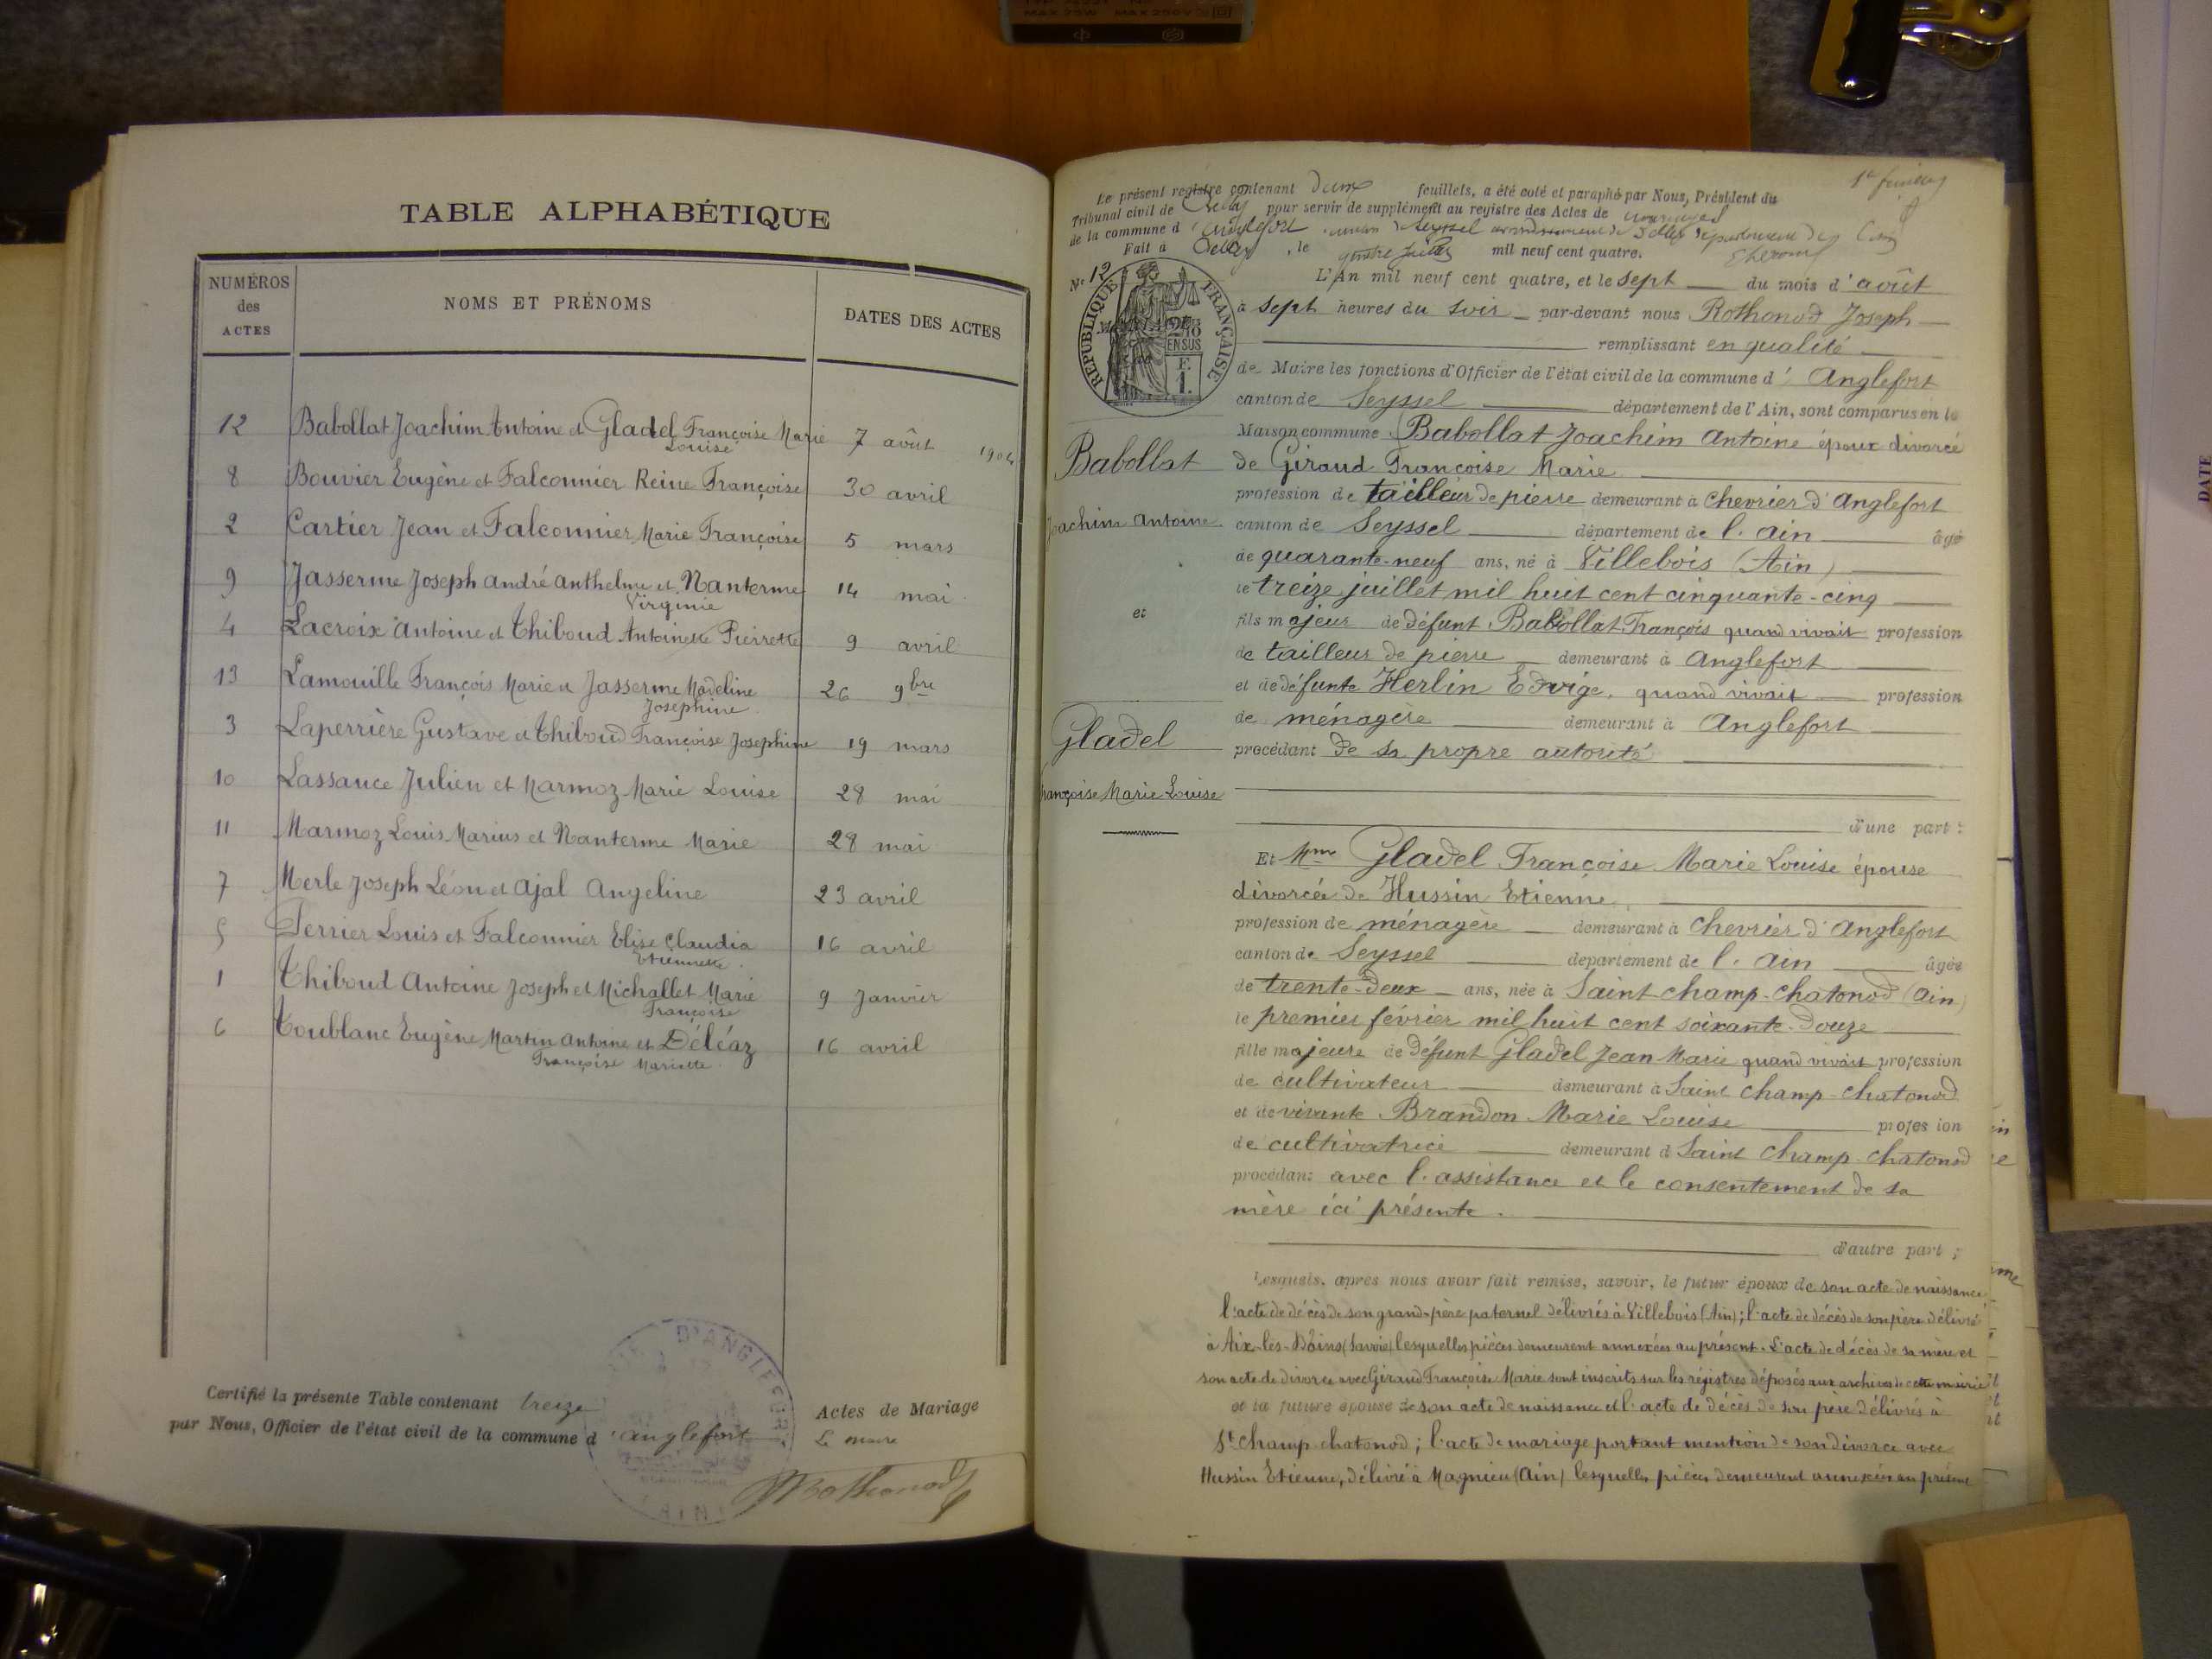 TABLE ALPHABÉTIQUE
NUMÉROS des ACTES
NOMS ET PRÉNOMS
DATES DES ACTES
12 Babollat Joachim Antoine et Gladel Françoise Marie 7 août 1904
Louise
8 Bouvier Eugène et Falconnier Reine Françoise 30 avril
2 Cartier Jean et Falconnier Marie Françoise 5 mars
9 Jasserme Joseph André Anthelme et Nanterme 14 mai
Virginie
4 Lacroix Antoine et Thiboud Antoinette Pierrette 9 avril
13 Lamouille François Marie et Jasserme Madeline 26 9bre
Josephine
3 Laperrière Gustave et Thiboud Françoise Josephine 19 mars
10 Lassance Julien et Marmoz Marie Louise 28 mai
11 Marmoz Louis Marius et Nanterme Marie 28 mai
7 Merle Joseph Léon et Ajal Angeline 23 avril
5 Perrier Louis et Falconnier Elise Claudia 16 avril
Etiennette
1 Thiboud Antoine Joseph et Michallet Marie 9 Janvier
Françoise
6 Toublanc Eugène Martin Antoine et Déléaz 16 avril
Françoise Mariette
Certifié la présente Table contenant treize Actes de Mariage
par Nous, Officier de l'état civil de la commune d'Anglefort Le maire
D'ANGLEFORT
Rothonod
1er feuillet
Le présent registre contenant deux feuillets, a été coté et paraphé par Nous, Président du
Tribunal civil de Belley pour servir de supplément au registre des Actes de mariages
de la commune d'Anglefort canton de Seyssel arrondissement de Belley département de l'Ain
Fait à Belley, le quatre juillet mil neuf cent quatre.
No 12
RÉPUBLIQUE FRANÇAISE
L'An mil neuf cent quatre, et le sept du mois d'août
à sept heures du soir par-devant nous Rothonod Joseph
remplissant en qualité
de Maire les fonctions d'Officier de l'état civil de la commune d'Anglefort
canton de Seyssel département de l'Ain, sont comparus en la
Maison commune Babollat Joachim Antoine époux divorcé
Babollat
de Giraud Françoise Marie
profession de tailleur de pierre demeurant à Chevrier d'Anglefort
Joachim Antoine
canton de Seyssel département de l'Ain âgé
de quarante-neuf ans, né à Villebois (Ain)
le treize juillet mil huit cent cinquante-cinq
et
fils majeur de défunt Babollat François quand vivait profession
de tailleur de pierre demeurant à Anglefort
et de défunte Herlin Edvige, quand vivait profession
de ménagère demeurant à Anglefort
Gladel
procédant de sa propre autorité
Françoise Marie Louise
d'une part :
Et Mme Gladel Françoise Marie Louise épouse
divorcée de Hussin Etienne
profession de ménagère demeurant à Chevrier d'Anglefort
canton de Seyssel département de l'Ain âgée
de trente-deux ans, née à Saint-Champ-Chatonod (Ain)
le premier février mil huit cent soixante-douze
fille majeure de défunt Gladel Jean Marie quand vivait profession
de cultivateur demeurant à Saint Champ-Chatonod
et de vivante Brandon Marie Louise profession
de cultivatrice demeurant à Saint Champ-Chatonod
procédant avec l'assistance et le consentement de sa
mère ici présente.
d'autre part ;
Lesquels, après nous avoir fait remise, savoir, le futur époux de son acte de naissance
l'acte de décès de son grand-père paternel délivrés à Villebois (Ain) ; l'acte de décès de son père délivré
à Aix-les-Bains (Savoie) lesquelles pièces demeurent annexées au présent. L'acte de décès de sa mère et
son acte de divorce avec Giraud Françoise Marie sont inscrits sur les régistres déposés aux archives de cette mairie
et la future épouse de son acte de naissance et l'acte de décès de son père délivrés à
St Champ-Chatonod ; l'acte de mariage portant mention de son divorce avec
Hussin Etienne, délivré à Magnieu (Ain) lesquelles pièces demeurent annexées au présent
DATE